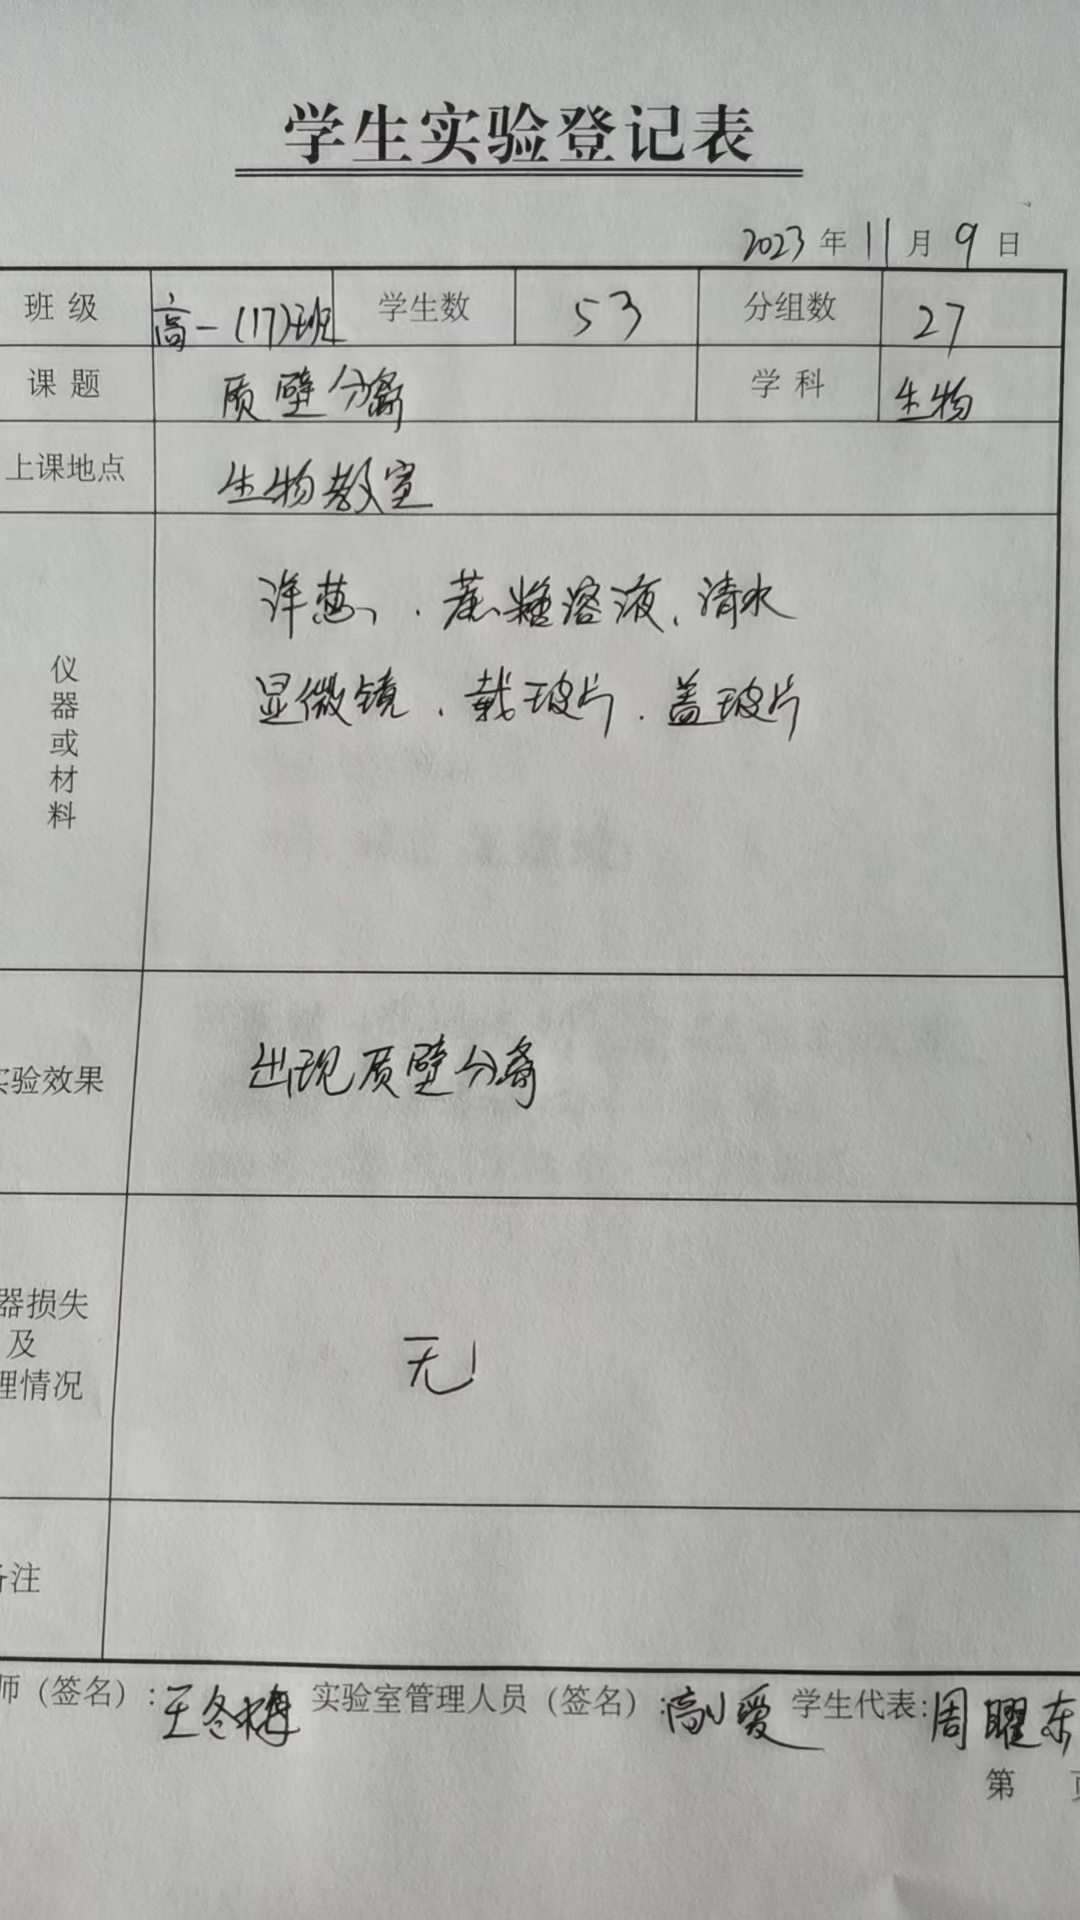 学生实验登记表
2023年11月9日
班级 高一(17)班 学生数 53 分组数 27
课题 质壁分离 学科 生物
上课地点 生物教室
仪器或材料
洋葱、蔗糖溶液、清水
显微镜、载玻片、盖玻片
实验效果 出现质壁分离
器损失
及
理情况
无
备注
师（签名）:王冬梅 实验室管理人员（签名）:高小爱 学生代表:周曜东
第 页